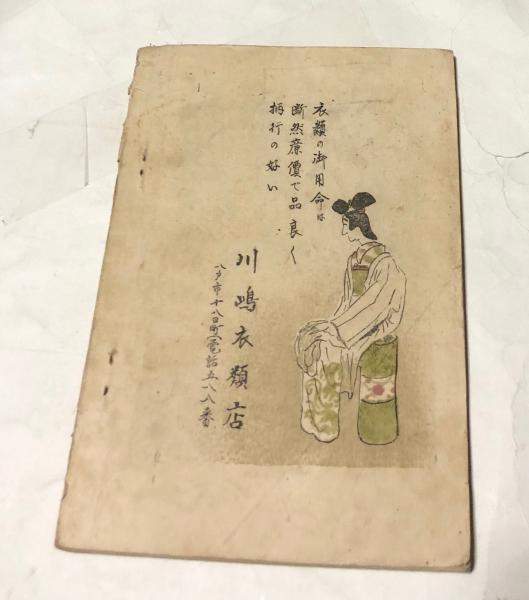 衣類の御用命は
断然廉價で品良く
柄行の好い
川嶋衣類店
八戸市十八日町(電話五八八番